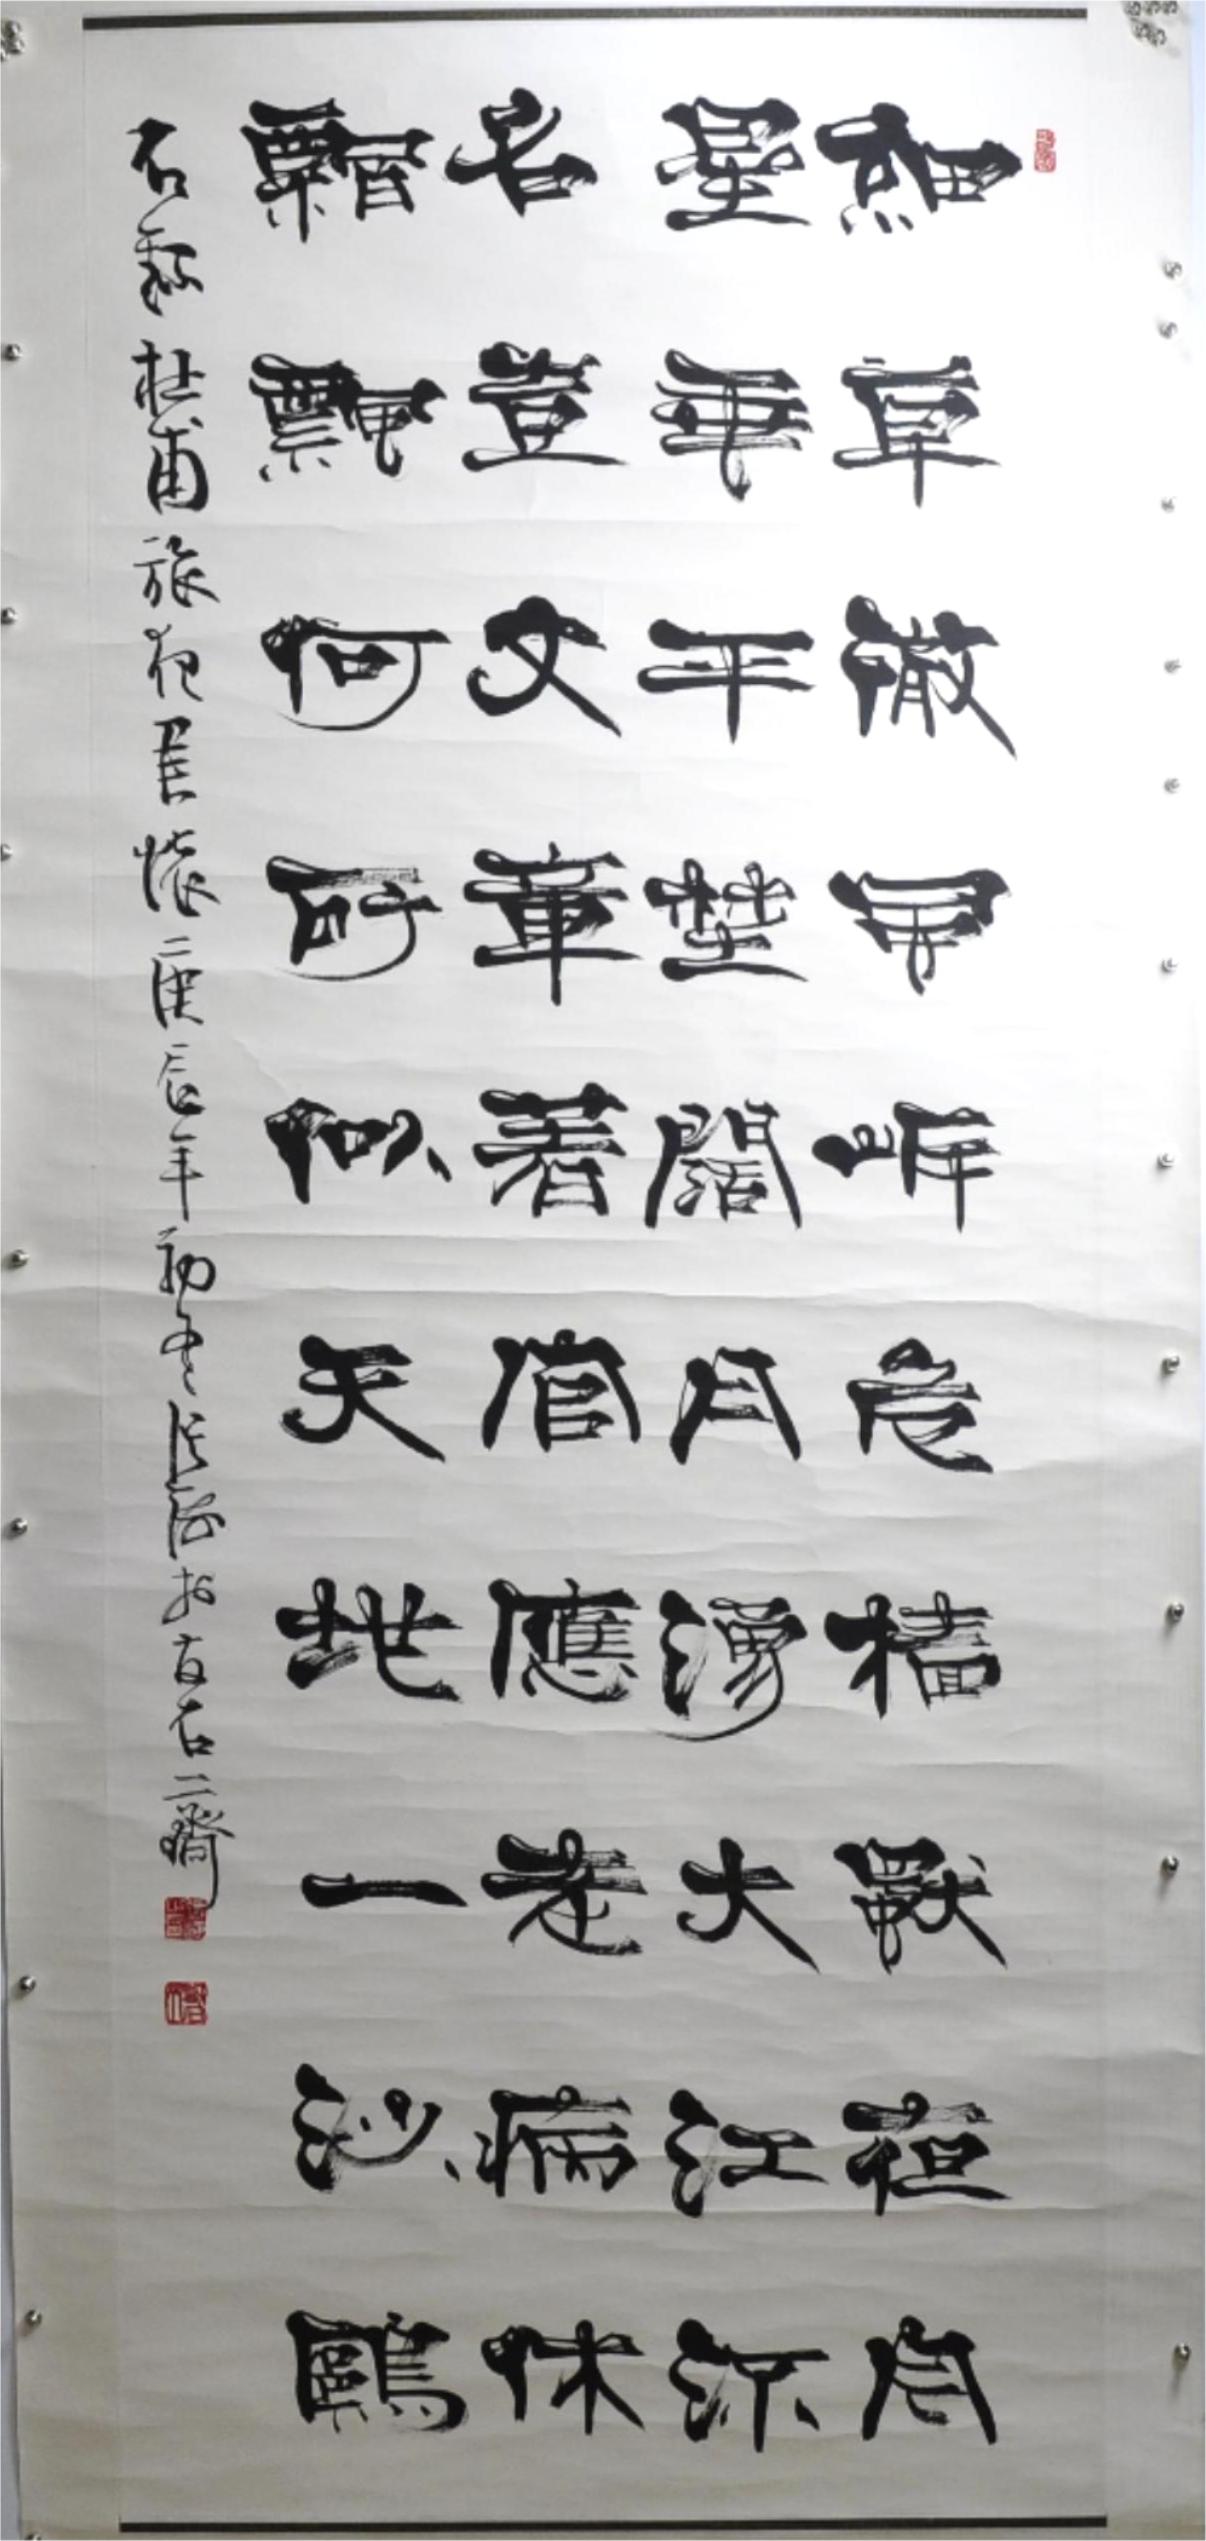 細草微風岸危檣獨夜舟
星垂平埜闊月湧大江流
名豈文章著官應老病休
飄飄何所似天地一沙鷗
右錄杜甫旅夜書懷庚辰年初冬